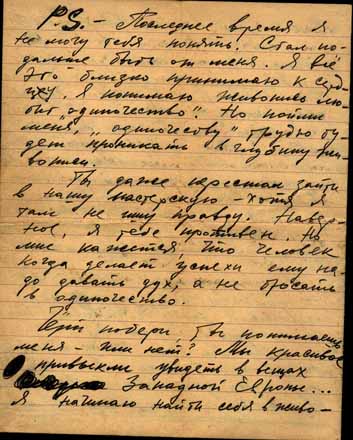 PS. – Последнее время я
не могу тебя понять. Стал по-
дальше быть от меня. Я всё
это близко принимаю к серд-
цу. Я понимаю живопись лю-
бит "одиночество". Но пойми
меня, "одиночеству" трудно бу-
дет проникать в глубину жи-
вописи.
Ты даже перестал зайти
в нашу мастерскую – хотя я
там не ищу правду. Навер-
ное, я тебе противен. Но
мне кажется, что человек
когда делает успехи ему на-
до давать дух, а не бросать
в одиночество.
Чёрт побери, ты понимаешь
меня – или нет? Мы красивое
привыкли увидеть в вещах
Западной Европы...
Я начинаю найти себя в живо-